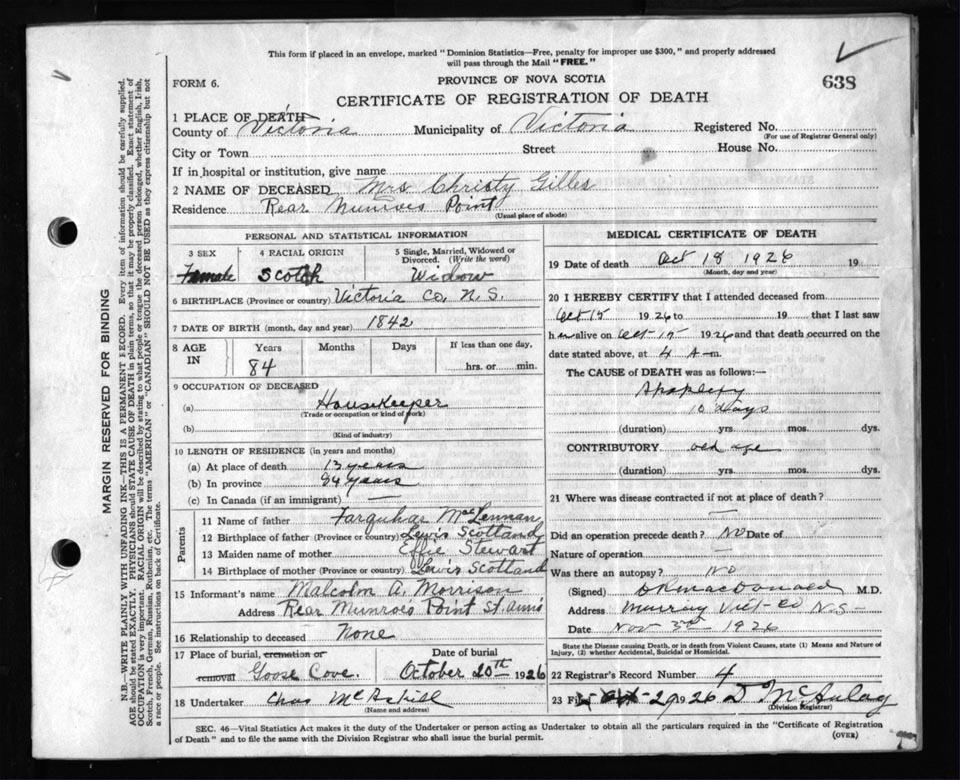 This form if placed in an envelope, marked "Dominion Statistics—Free, penalty for improper use $300," and properly addressed
will pass through the Mail "FREE."
638
FORM 6.
PROVINCE OF NOVA SCOTIA
CERTIFICATE OF REGISTRATION OF DEATH
1 PLACE OF DEATH
County of Victoria Municipality of Victoria Registered No.
(For use of Registrar General only)
City or Town Street House No.
If in hospital or institution, give name
2 NAME OF DECEASED Mrs Christy Gilles
Residence Rear Munroes Point
(Usual place of abode)
PERSONAL AND STATISTICAL INFORMATION
3 SEX 4 RACIAL ORIGIN 5 Single, Married, Widowed or
Divorced. (Write the word)
Female Scotch Widow
6 BIRTHPLACE (Province or country) Victoria Co, N. S.
7 DATE OF BIRTH (month, day and year) 1842
8 AGE IN Years Months Days If less than one day,
84 hrs. or min.
9 OCCUPATION OF DECEASED
(a) Housekeeper
(Trade or occupation or kind of work)
(b)
(Kind of industry)
10 LENGTH OF RESIDENCE (in years and months)
(a) At place of death 13 years
(b) In province 84 years
(c) In Canada (if an immigrant) —
Parents
11 Name of father Farquhar McLennan
12 Birthplace of father (Province or country) Lewis Scotland
13 Maiden name of mother Effie Stewart
14 Birthplace of mother Lewis Scotland
15 Informant's name Malcolm A. Morrison
Address Rear Munroes Point St. Anns
16 Relationship to deceased None
17 Place of burial, cremation or removal Goose Cove.
Date of burial
October 20th 1926
18 Undertaker Chas McAskill
(Name and address)
MEDICAL CERTIFICATE OF DEATH
19 Date of death Oct 18 1926 19
(Month, day and year)
20 I HEREBY CERTIFY that I attended deceased from
Oct 15 1926 to 19 that I last saw
h alive on Oct 15 1926 and that death occurred on the
date stated above, at 4 A m.
The CAUSE of DEATH was as follows:—
Apoplexy
10 days
(duration) yrs. mos. dys.
CONTRIBUTORY old age
(duration) yrs. mos. dys.
21 Where was disease contracted if not at place of death?
—
Did an operation precede death? NO Date of
Nature of operation —
Was there an autopsy? No
(Signed) MacDonald M.D.
Address Murray Vict- Co N.S-
Date Nov 3rd 1926
State the Disease causing Death, or in death from Violent Causes, state (1) Means and Nature of
Injury, (2) whether Accidental, Suicidal or Homicidal.
22 Registrar's Record Number 4
23 29 1926 D McAulay
(Division Registrar)
SEC. 46—Vital Statistics Act makes it the duty of the Undertaker or person acting as Undertaker to obtain all the particulars required in the "Certificate of Registration
of Death" and to file the same with the Division Registrar who shall issue the burial permit.
(OVER)
MARGIN RESERVED FOR BINDING
N.B.—WRITE PLAINLY WITH UNFADING INK—THIS IS A PERMANENT RECORD. Every item of information should be carefully supplied.
AGE should be stated EXACTLY. PHYSICIANS should STATE CAUSE OF DEATH in plain terms, so that it may be properly classified. Exact statement of
OCCUPATION is very important. RACIAL ORIGIN will be described by stating to what people or tongue the deceased person belonged, whether English, Irish,
Scotch, French, German, Russian, Ruthenian, etc. The terms "AMERICAN" or "CANADIAN" SHOULD NOT BE USED as they express citizenship but not
a race or people. See instructions on back of Certificate.